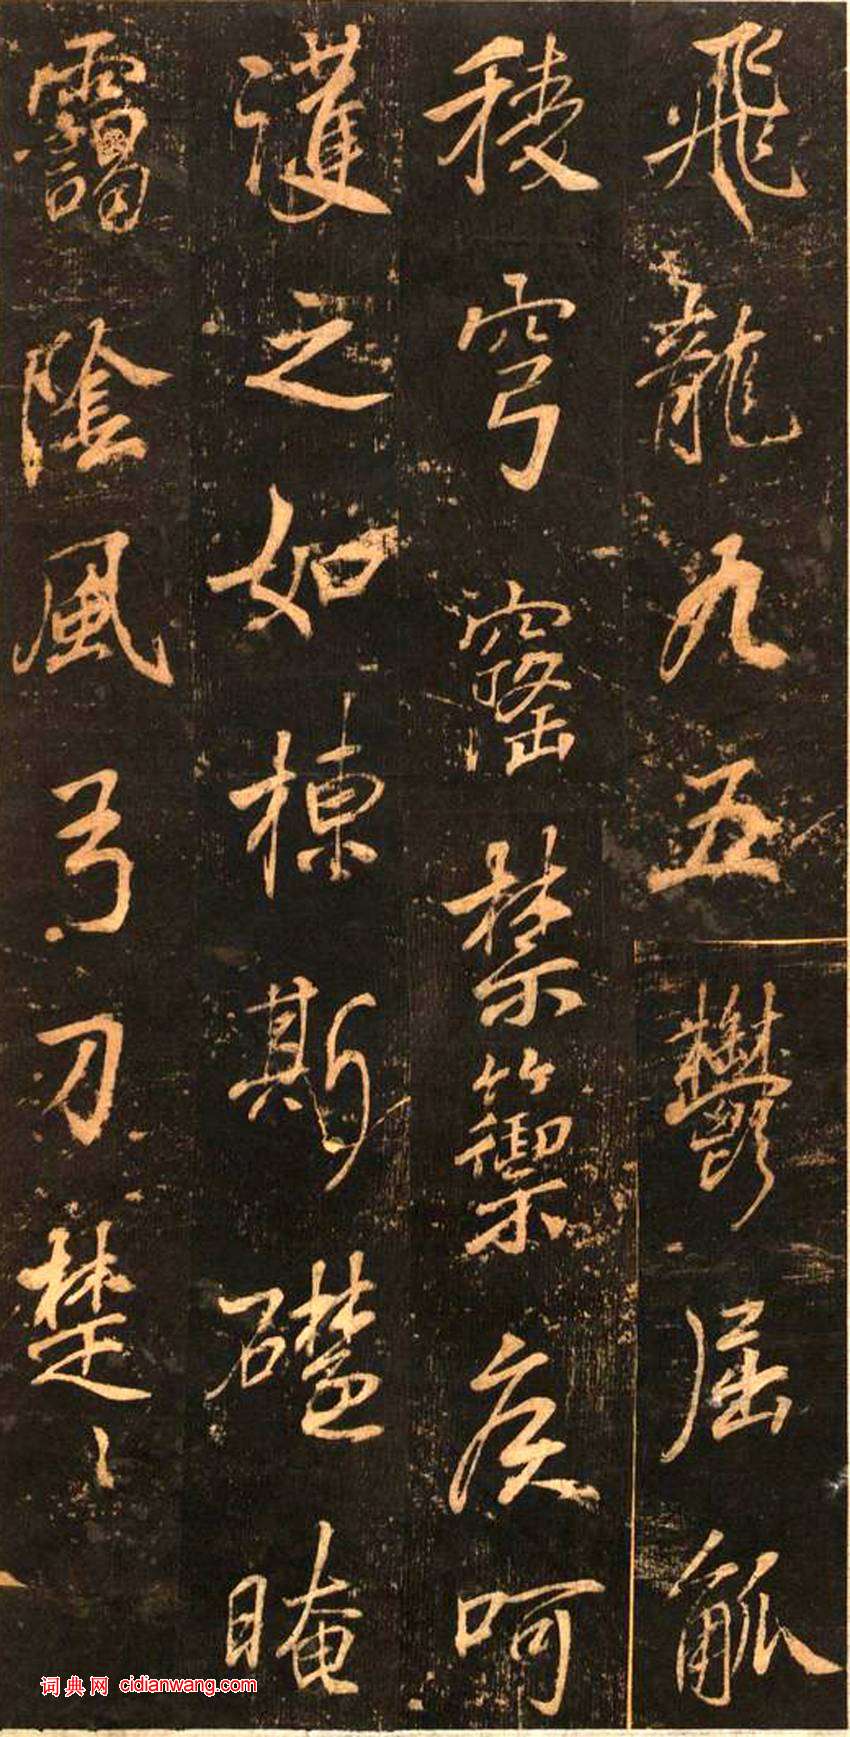 飛龍九五鬱屈觚
稜穹窿禁籞矦呵
護之如棟斯礎晻
靄陰風弓刀楚〻
词典网 cidianwang.com